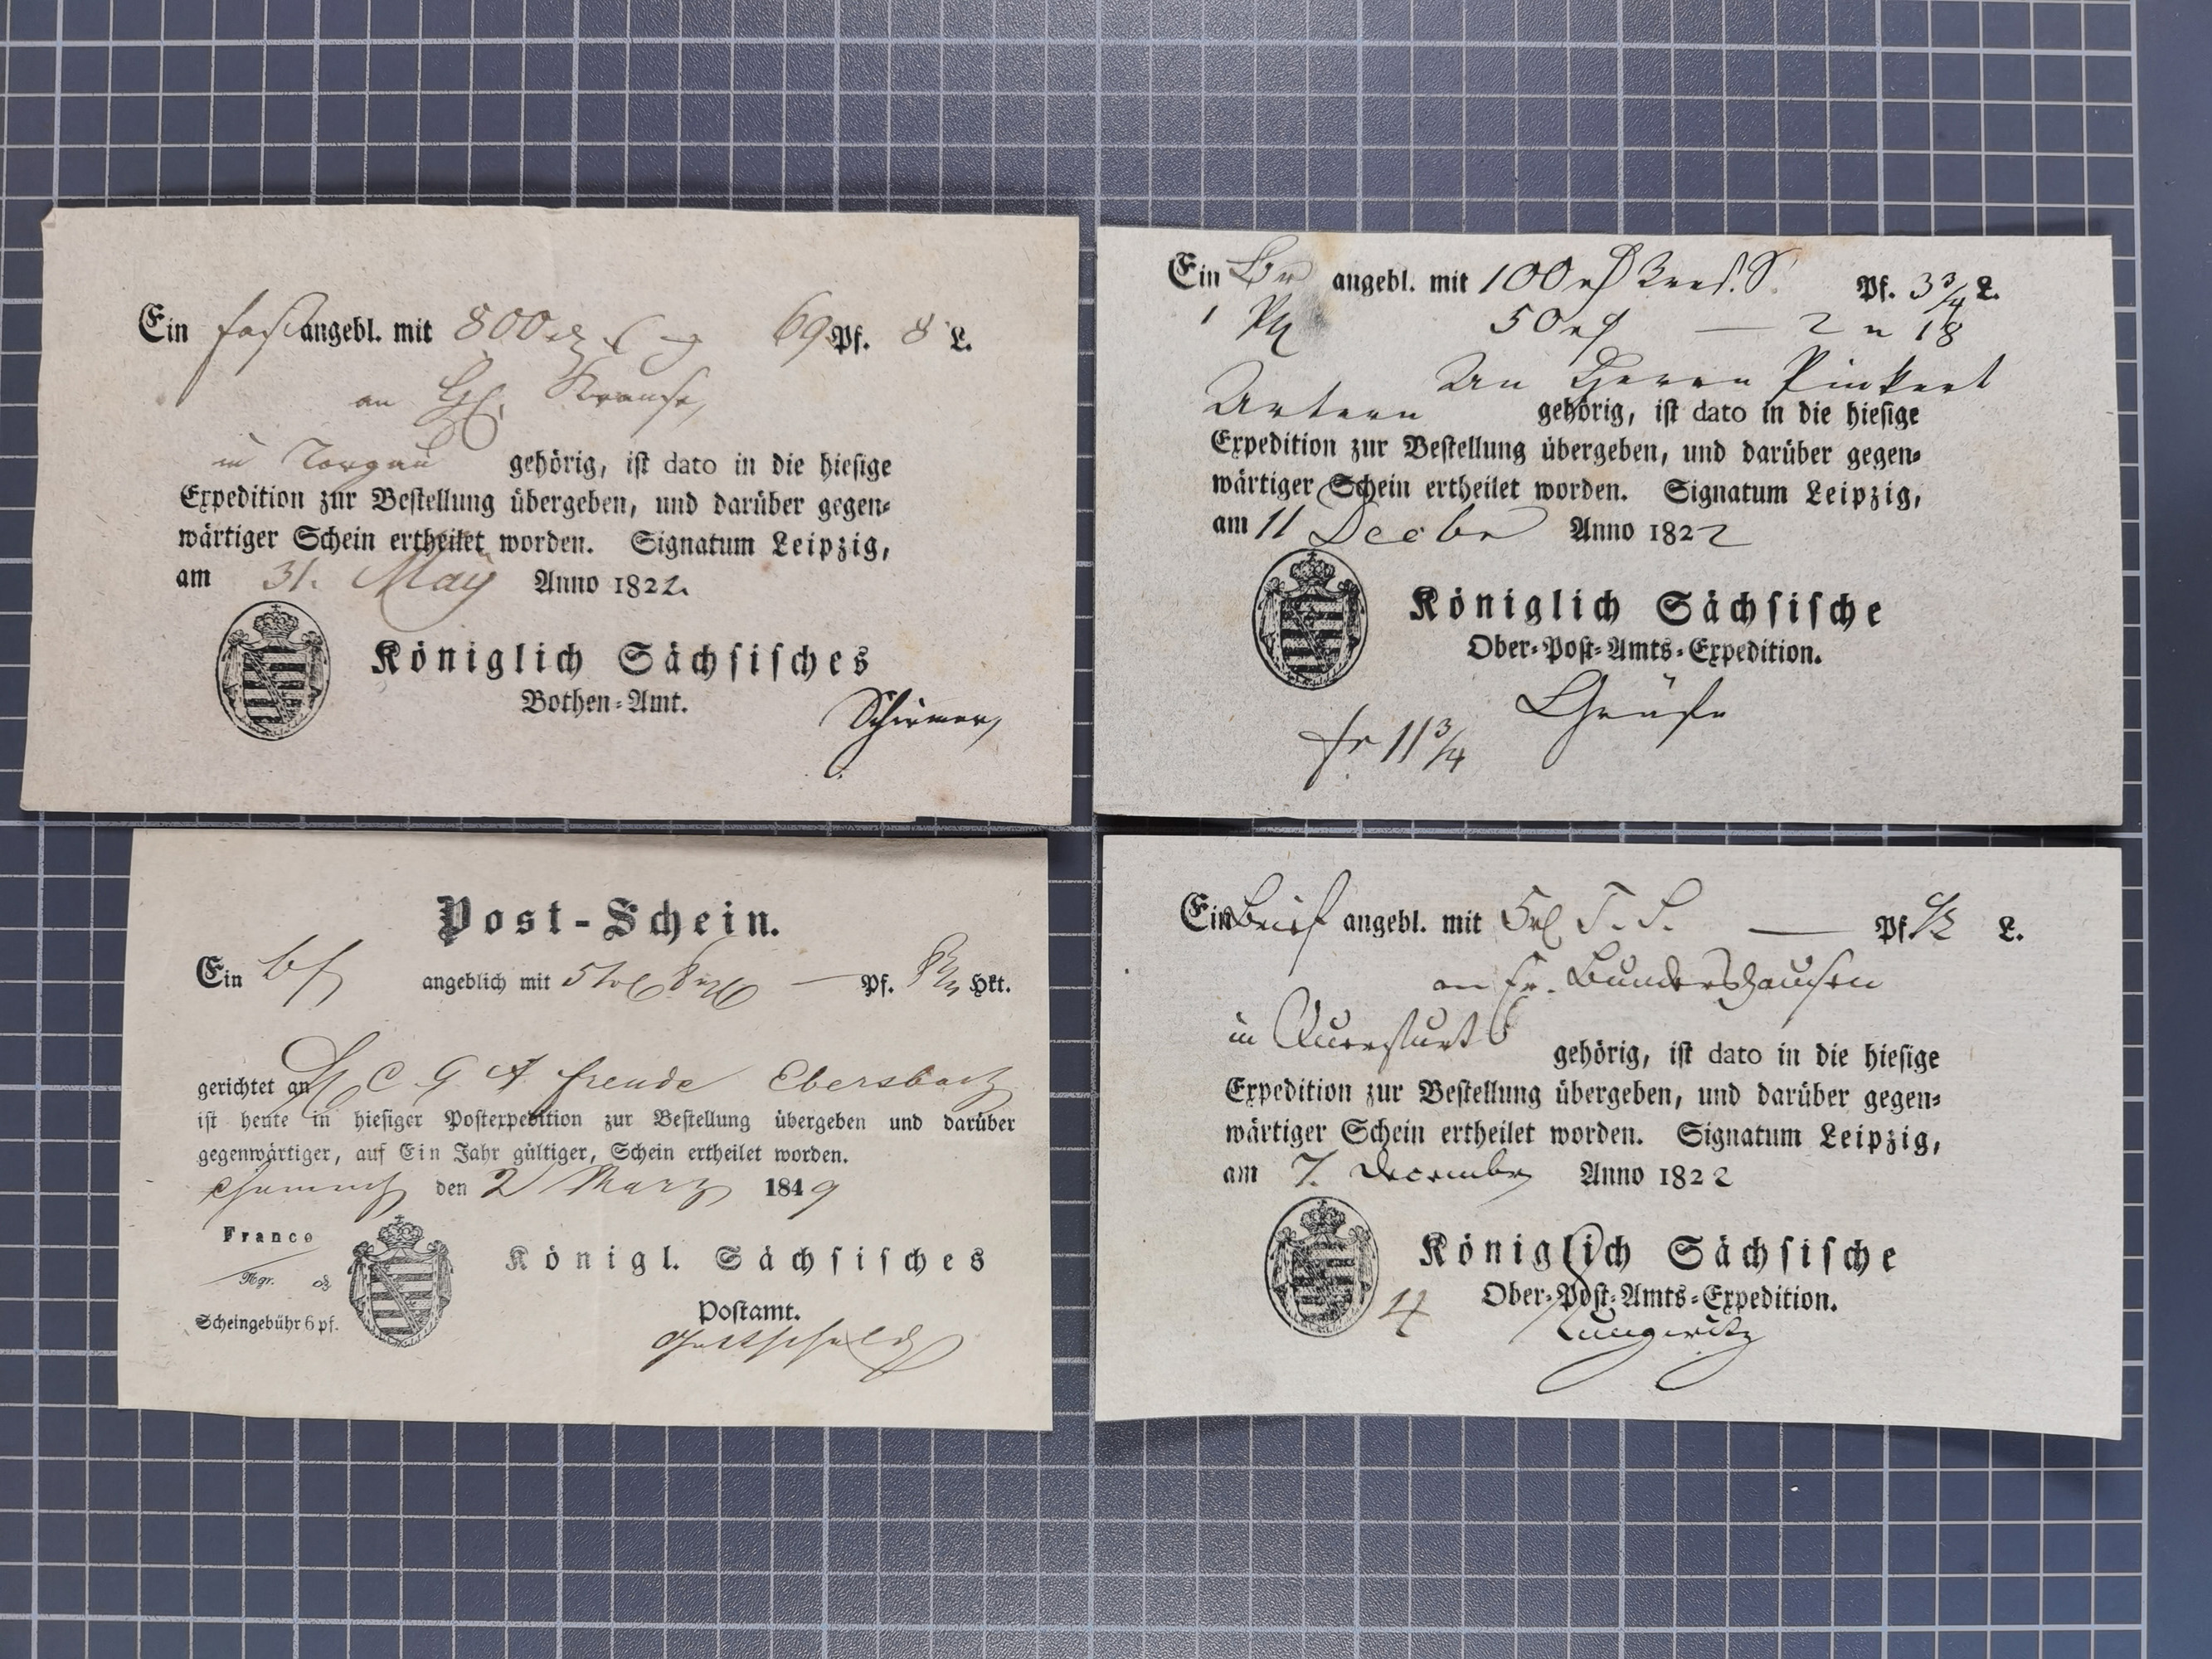 Ein Fass angebl. mit 800 69 Pf. 8 L.
an Krause,
in Torgau gehörig, ist dato in die hiesige
Expedition zur Bestellung übergeben, und darüber gegen-
wärtiger Schein ertheilet worden. Signatum Leipzig,
am 31. May Anno 1822.
Königlich Sächsisches
Bothen-Amt.
Schirmer,
Ein Br angebl. mit 100 Pf. 3 3/4 L.
1 50 — 2 18
An Herrn Pinkert
Artern gehörig, ist dato in die hiesige
Expedition zur Bestellung übergeben, und darüber gegen-
wärtiger Schein ertheilet worden. Signatum Leipzig,
am 11 Decbr Anno 1822
Königlich Sächsische
Ober-Post-Amts-Expedition.
fr 11 3/4
Post-Schein.
Ein bf angeblich mit — Pf. Hkt.
gerichtet an C G A Freude Ebersbach
ist heute in hiesiger Postexpedition zur Bestellung übergeben und darüber
gegenwärtiger, auf Ein Jahr gültiger, Schein ertheilet worden.
Chemnitz den 2 März 1849
Franco
Ngr.
Scheingebühr 6 pf.
Königl. Sächsisches
Postamt.
Ein Brief angebl. mit — Pf. 1/2 L.
an Fr. Bundershausen
in Querfurt gehörig, ist dato in die hiesige
Expedition zur Bestellung übergeben, und darüber gegen-
wärtiger Schein ertheilet worden. Signatum Leipzig,
am 7. December Anno 1822
Königlich Sächsische
Ober-Post-Amts-Expedition.
Lungwitz